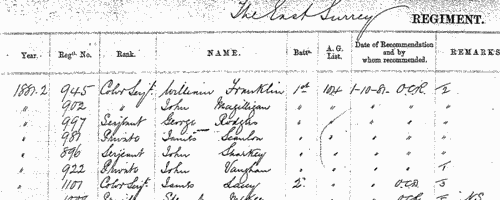 The East Surrey REGIMENT.
Year. Regtl. No. Rank. NAME. Battn. A. G. List. Date of Recommendation and by whom recommended. REMARKS
1881-2 945 Color Serjt. William Franklin 1st 104 1-10-81 O.C.R. 2
" 902 " John Magilligan " " " " "
" 997 Serjeant George Rodgers " " " " "
" 987 Private James Scanlon " " " "
" 896 Serjeant John Sharkey " " " "
" 922 Private John Vaughan " " " " 1
" 1101 Color Serjt. James Lacey 2 " " O.C.R. 3